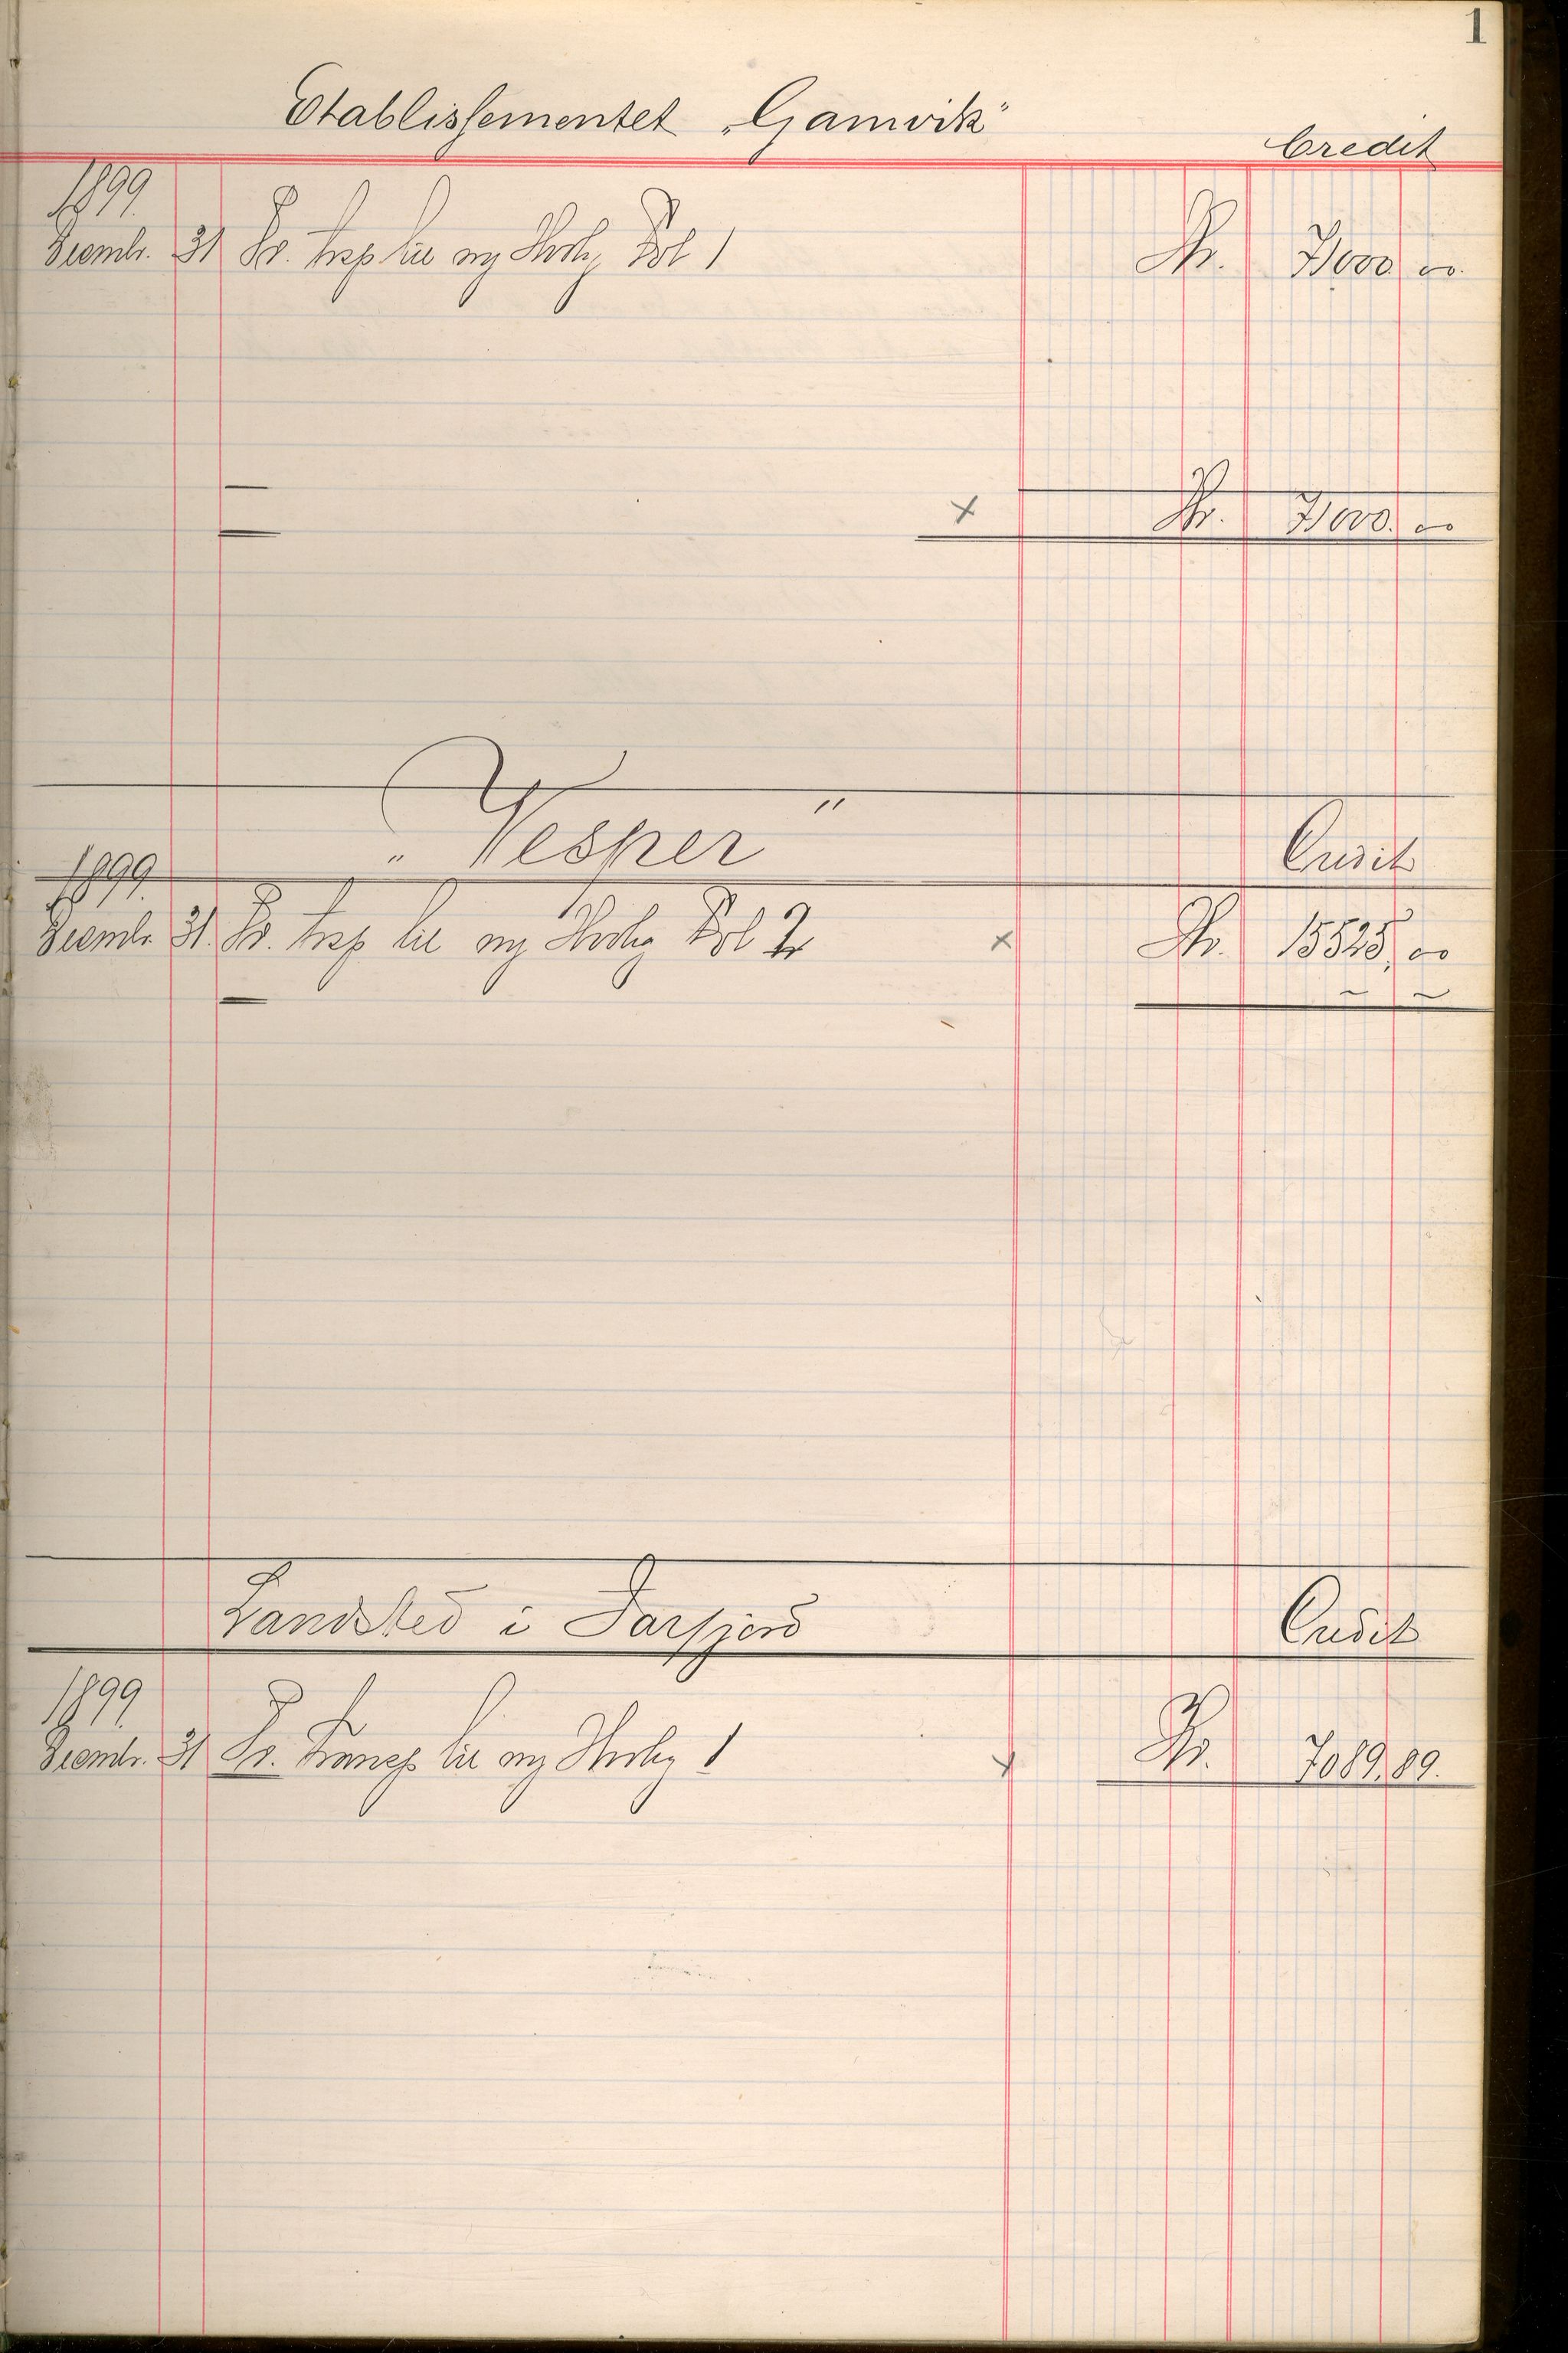 1
Etablissementet „Gamvik"
Credit
1899
Decmbr. 31 Pr. trsp til ny Hvdbg Fol 1 Kr. 71000 00
Kr. 71000. 00
„Vesper"
Credit
1899
Decmbr. 31. Pr. trsp til ny Hvdbg Fol 2 Kr. 15525, 00
Landsted i Jarfjord
Credit
1899
Decmbr. 31 Pr. Transp til ny Hvdbg 1 Kr. 7089,89.